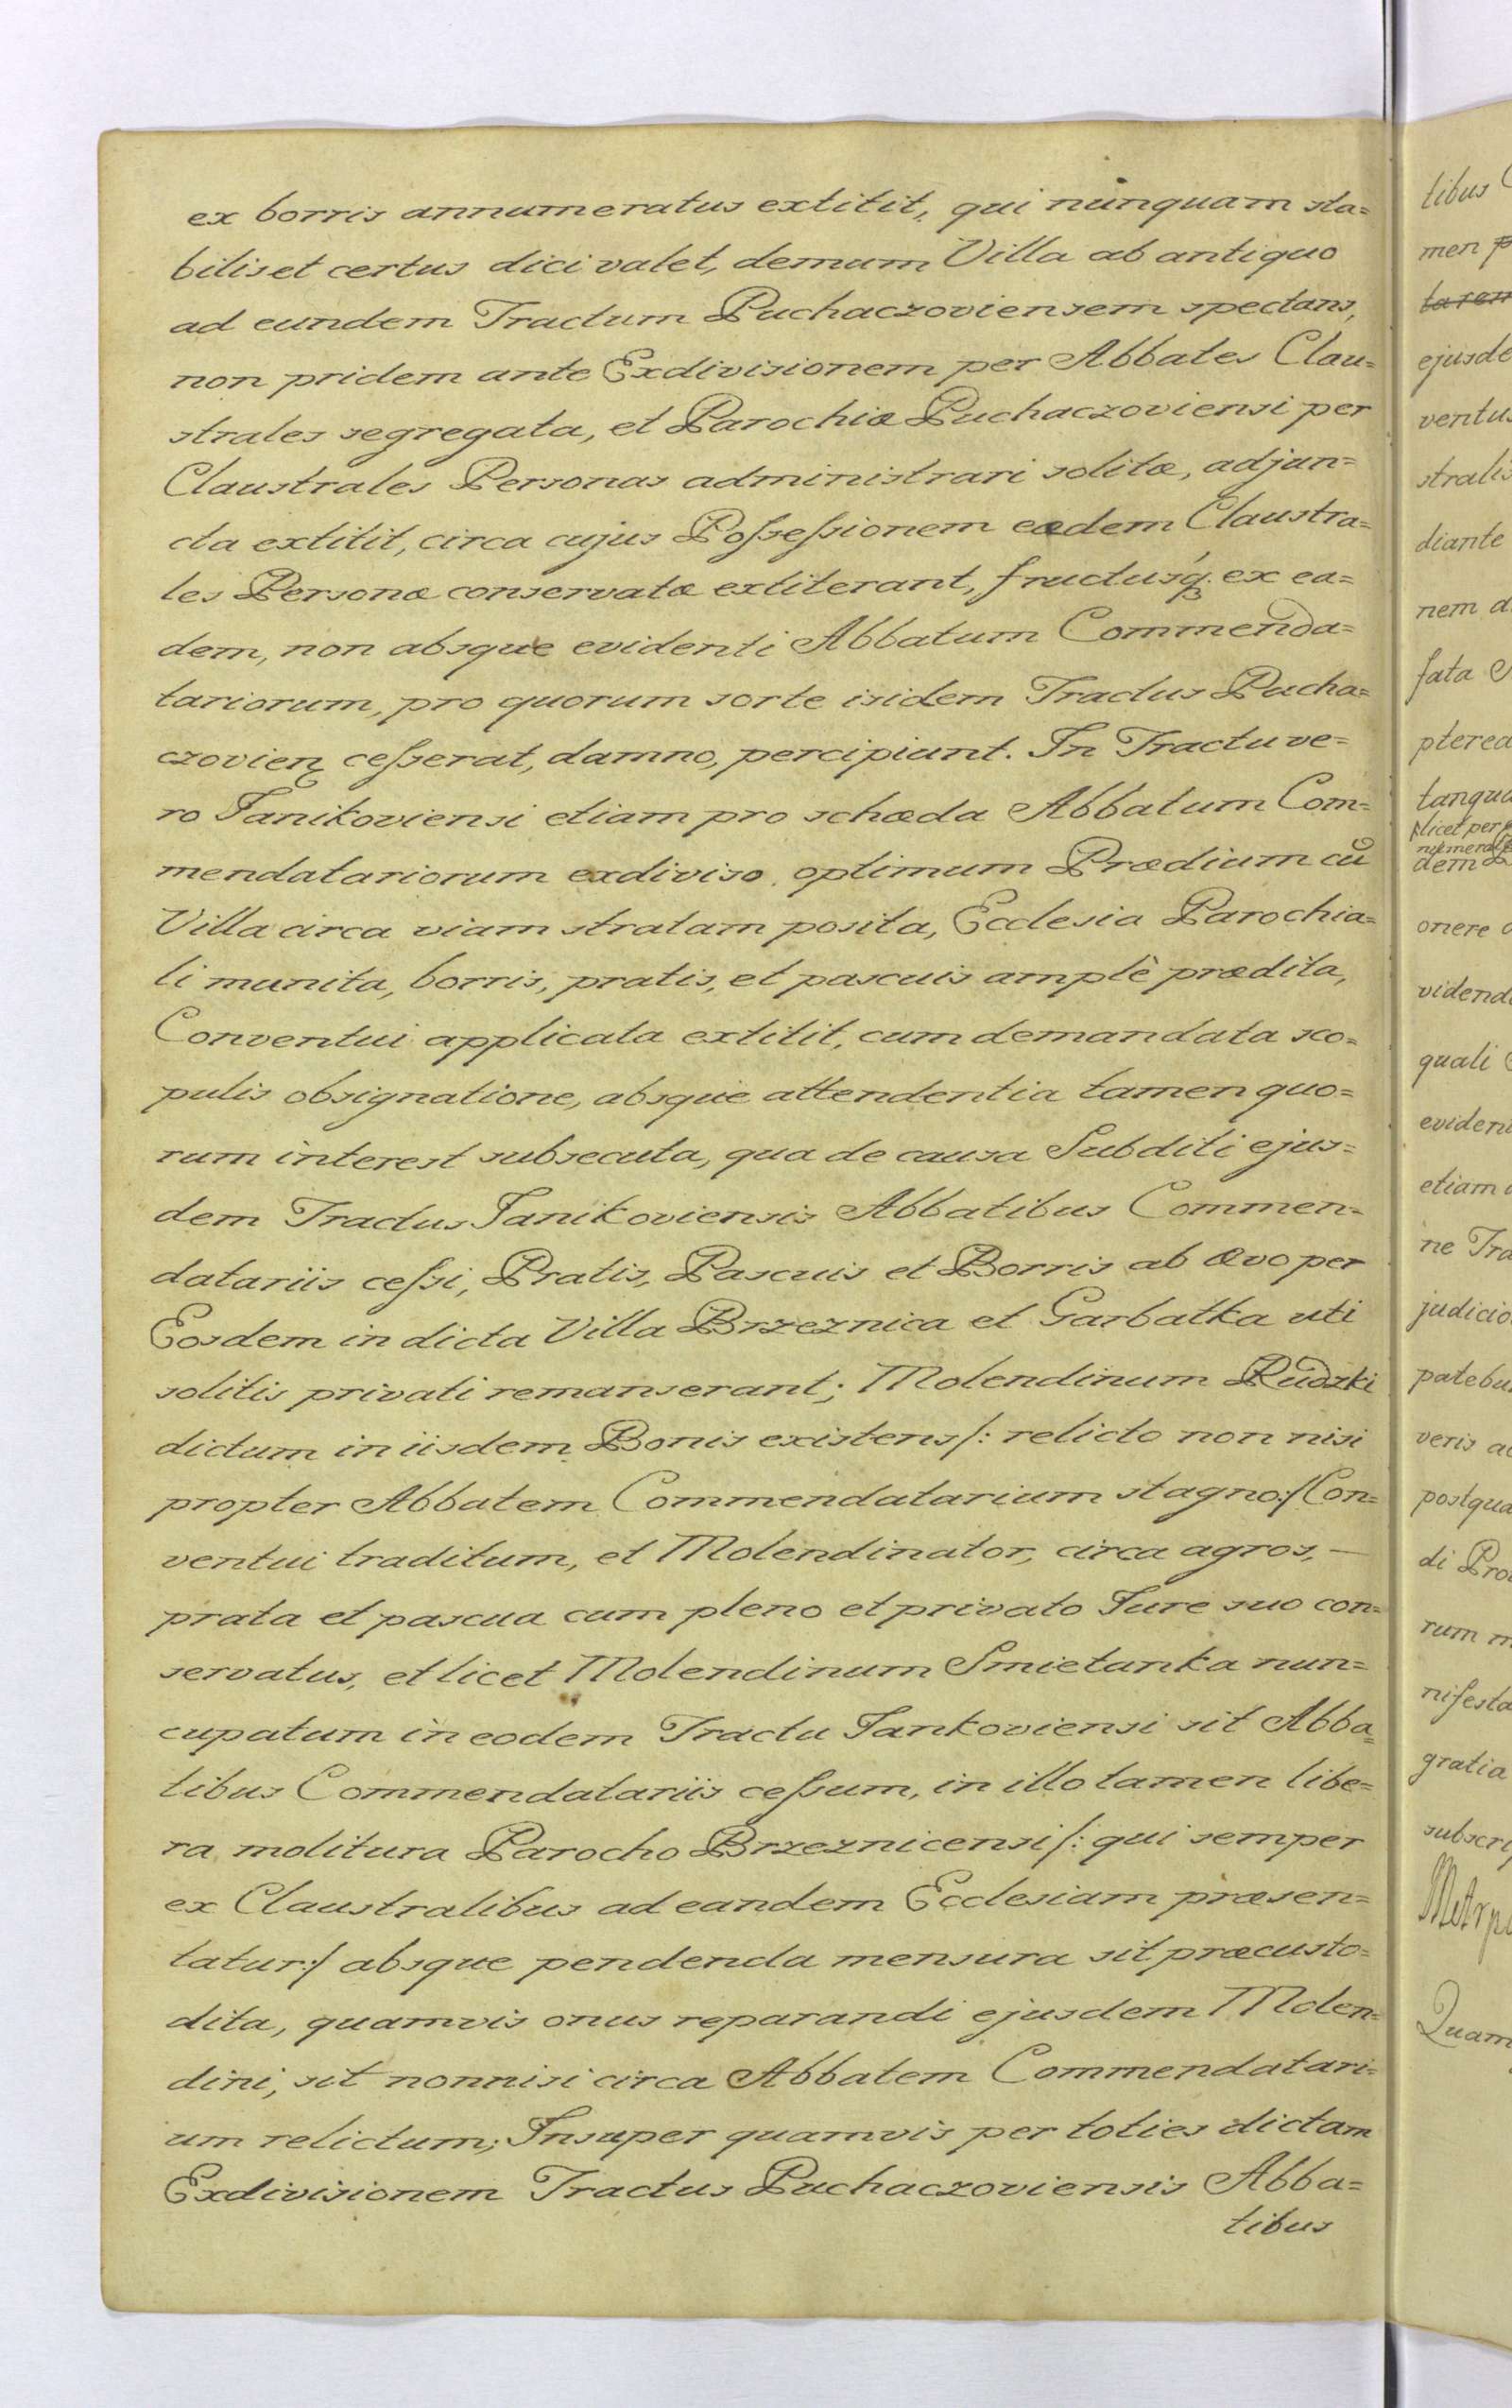 ex borris annumeratus extitit, qui nunquam sta=
bilis et certus dici valet, demum Villa ab antiquo
ad eundem Tractum Puchaczoviensem spectans,
non pridem ante Exdivisionem per Abbates Clau=
strales segregata, et Parochiæ Puchaczoviensi per
Claustrales Personas administrari solitæ, adjun=
cta extitit, circa cujus Poſseſsionem eædem Claustra=
les Personæ conservatæ extiterant, fructusq́ꝫ ex ea=
dem, non absque evidenti Abbatum Commenda=
tariorum, pro quorum sorte isidem Tractus Pucha=
czovien̄ ceſserat, damno, percipiunt. In Tractu ve=
ro Janikoviensi etiam pro schæda Abbatum Com=
mendatariorum exdiviso, optimum Prædium cū
Villa circa viam stratam posita, Ecclesia Parochia=
li munita, borris, pratis, et pascuis amplè prædita,
Conventui applicata extitit, cum demandata sco=
pulis obsignatione, absque attendentia tamen quo=
rum interest subsecuta, qua de causa Subditi ejus=
dem Tractus Janikoviensis Abbatibus Commen=
datariis ceſsi, Pratis, Pascuis et Borris ab ævo per
Eosdem in dicta Villa Brzeznica et Garbatka uti
solitis privati remanserant; Molendinum Rudzki
dictum in iisdem Bonis existens /: relicto non nisi
propter Abbatem Commendatarium stagno :/ Con=
ventui traditum, et Molendinator, circa agros, —
prata et pascua cum pleno et privato Jure suo con=
servatus, et licet Molendinum Smietanka nun=
cupatum in eodem Tractu Jankoviensi sit Abba=
tibus Commendatariis ceſsum, in illo tamen libe=
ra molitura Parocho Brzeznicensi /: qui semper
ex Claustralibus ad eandem Ecclesiam præsen=
tatur :/ absque pendenda mensura sit præcusto=
dita, quamvis onus reparandi ejusdem Molen=
dini, sit nonnisi circa Abbatem Commendatari=
um relictum; Insuper quamvis per toties dictam
Exdivisionem Tractus Puchaczoviensis Abba=
tibus